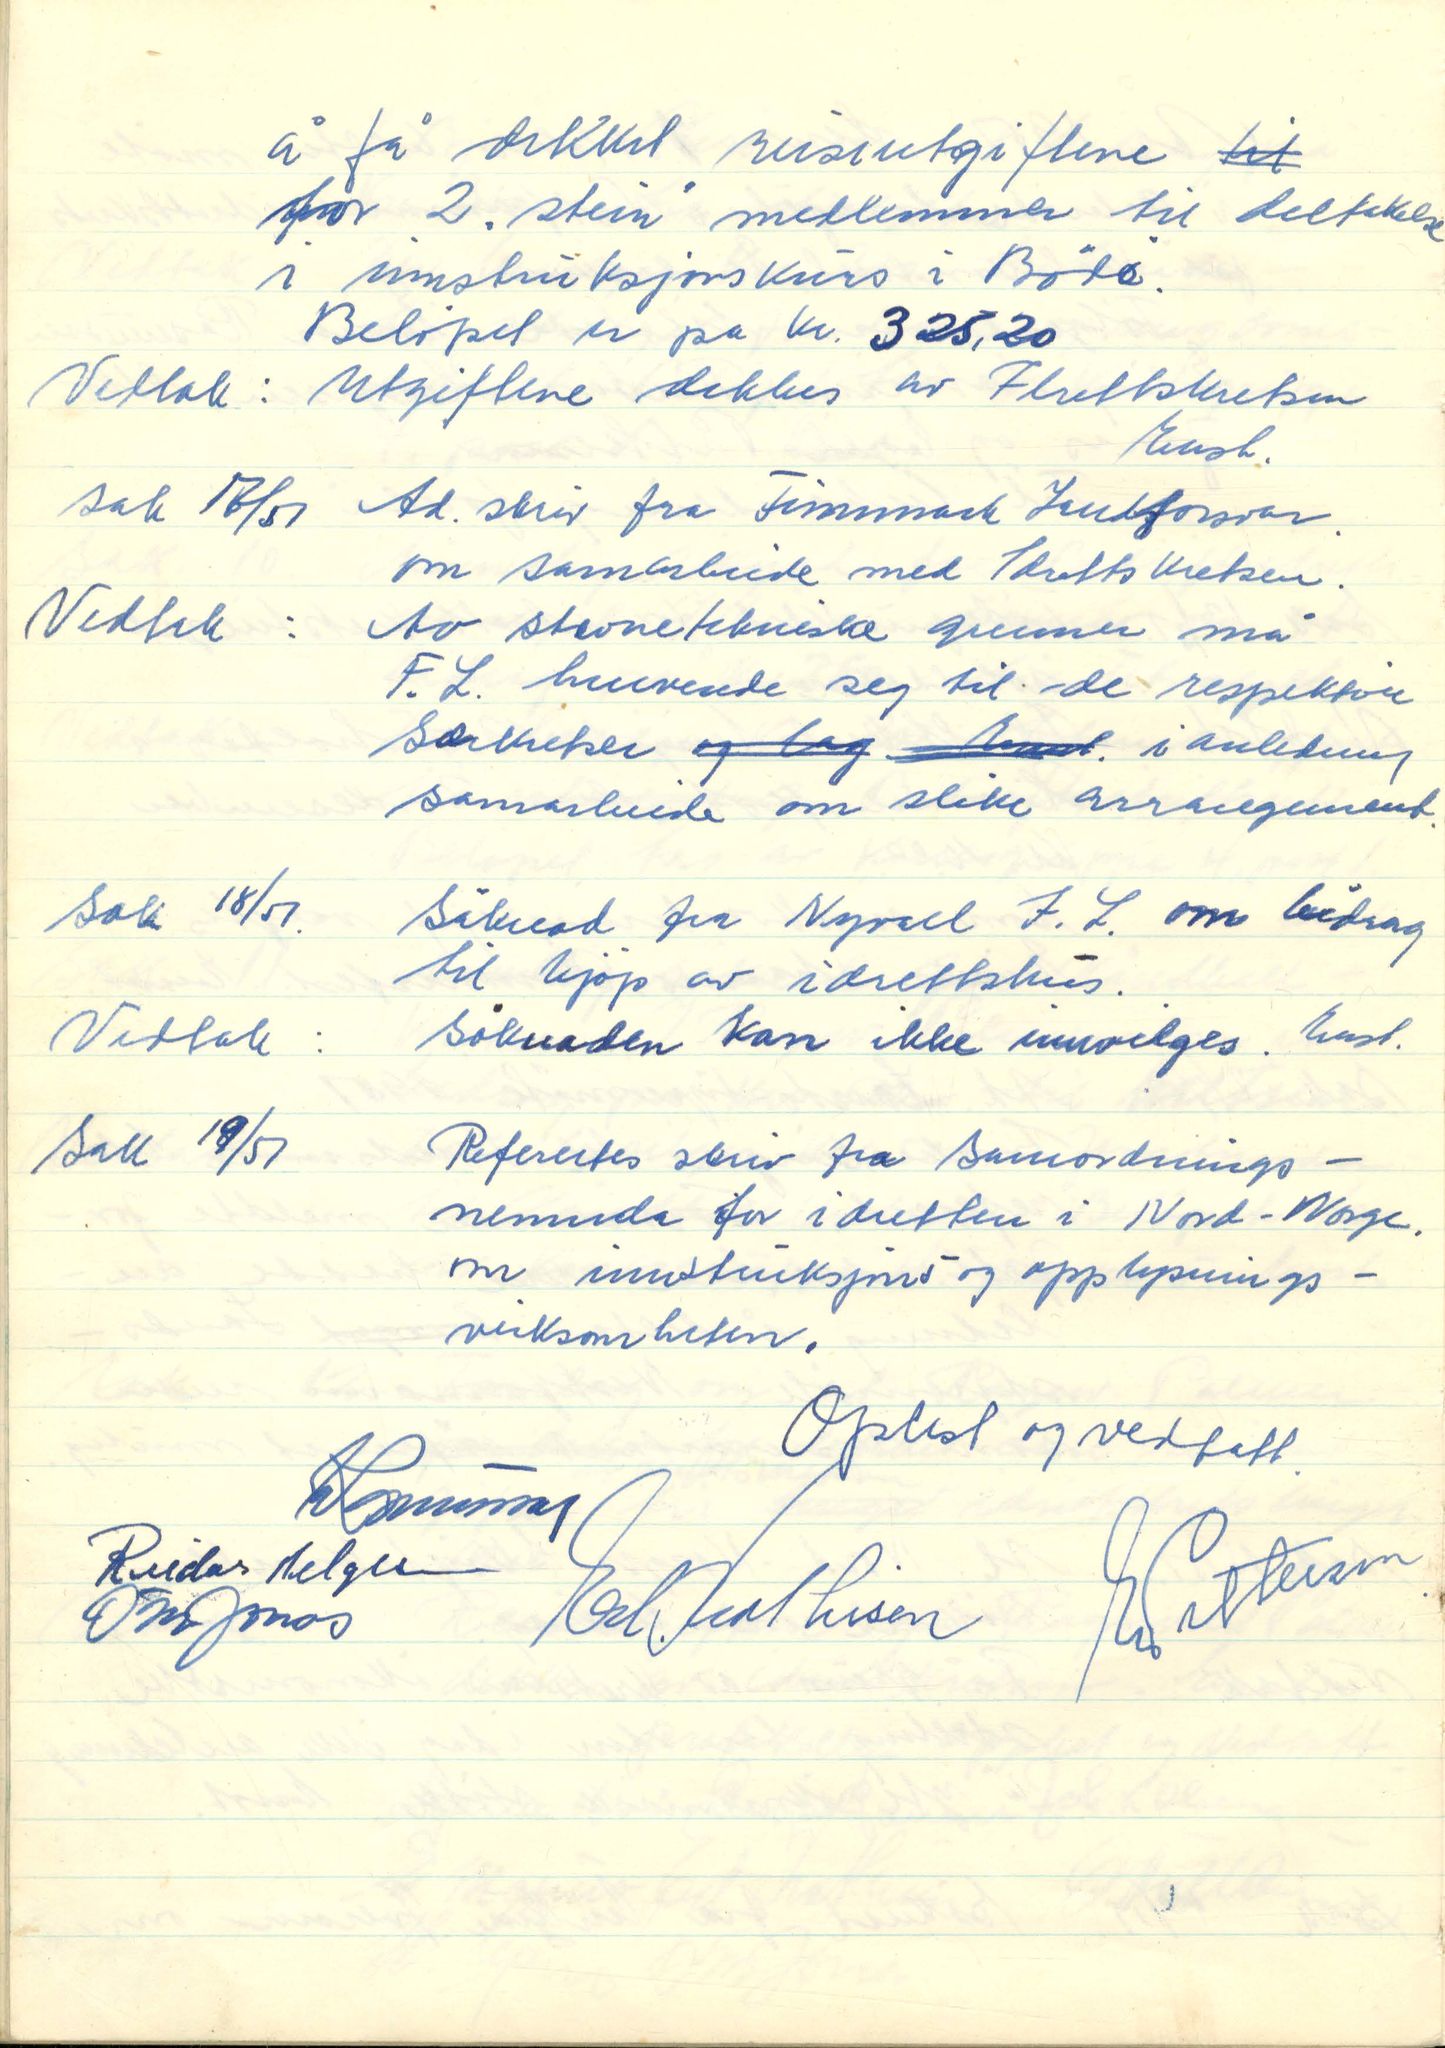 å få dekket reiseutgiftene ~~til~~
for 2. stein medlemmer til deltakelse
i innstruksjonskurs i Bödö.
Belöpet er på kr. 325,20
Vedtak : Utgiftene dekkes av Idrettskretsen
Enst.
Sak 17/51 Ad. skriv fra Finnmark Landforsvar
om samarbeide med Idrettskretsen.
Vedtak : Av stevnetekniske grunner må
F.L. henvende seg til de respektive
Særkretser ~~og lag~~ ~~Enst.~~ i anledning
samarbeide om slike arrangement.
Sak 18/51. Söknad fra Nyvoll I.L. om bidrag
til kjöp av idrettshus.
Vedtak : Söknaden kan ikke innvilges. Enst.
Sak 19/51 Refereртes skriv fra Samordnings-
nemnda for idretten i Nord-Norge.
om innstruksjons og opplysnings-
virksomheten.
Oplest og vedtatt.
Reidar Helgesen
Jonas
Mathisen
Pettersen